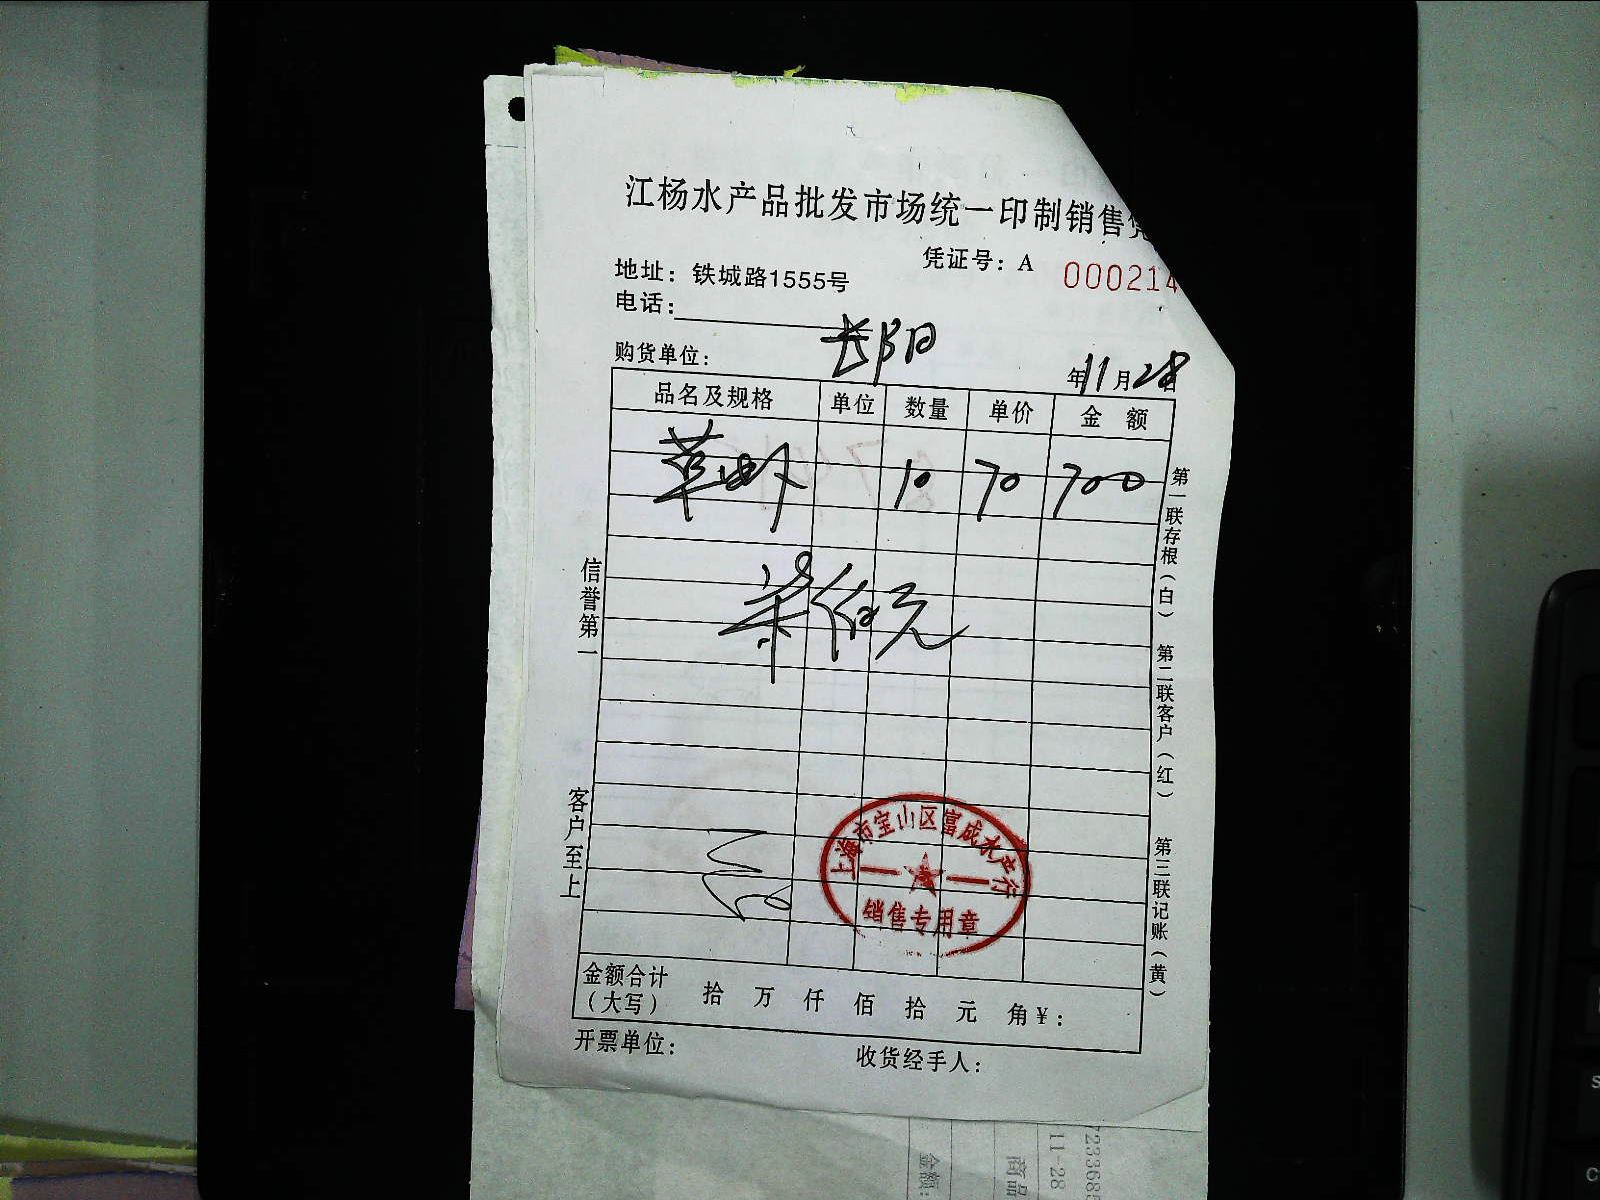 江杨水产品批发市场统一印制销售凭
凭证号：A 000214
地址：铁城路1555号
电话：
长阳
购货单位：
年11月28日
品名及规格 单位 数量 单价 金 额
草虾 10 70 700
信誉第一
客户至上
第一联存根（白）
第二联客户（红）
第三联记账（黄）
上海市宝山区富成水产行
销售专用章
金额合计（大写） 拾 万 仟 佰 拾 元 角￥：
开票单位： 收货经手人：
11-28
商品
金额：